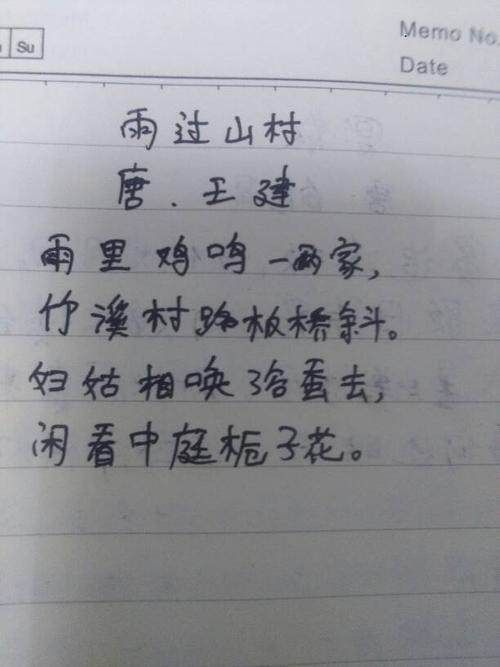 Su
Memo No.
Date
雨过山村
唐.王建
雨里鸡鸣一两家,
竹溪村路板桥斜。
妇姑相唤浴蚕去,
闲看中庭栀子花。